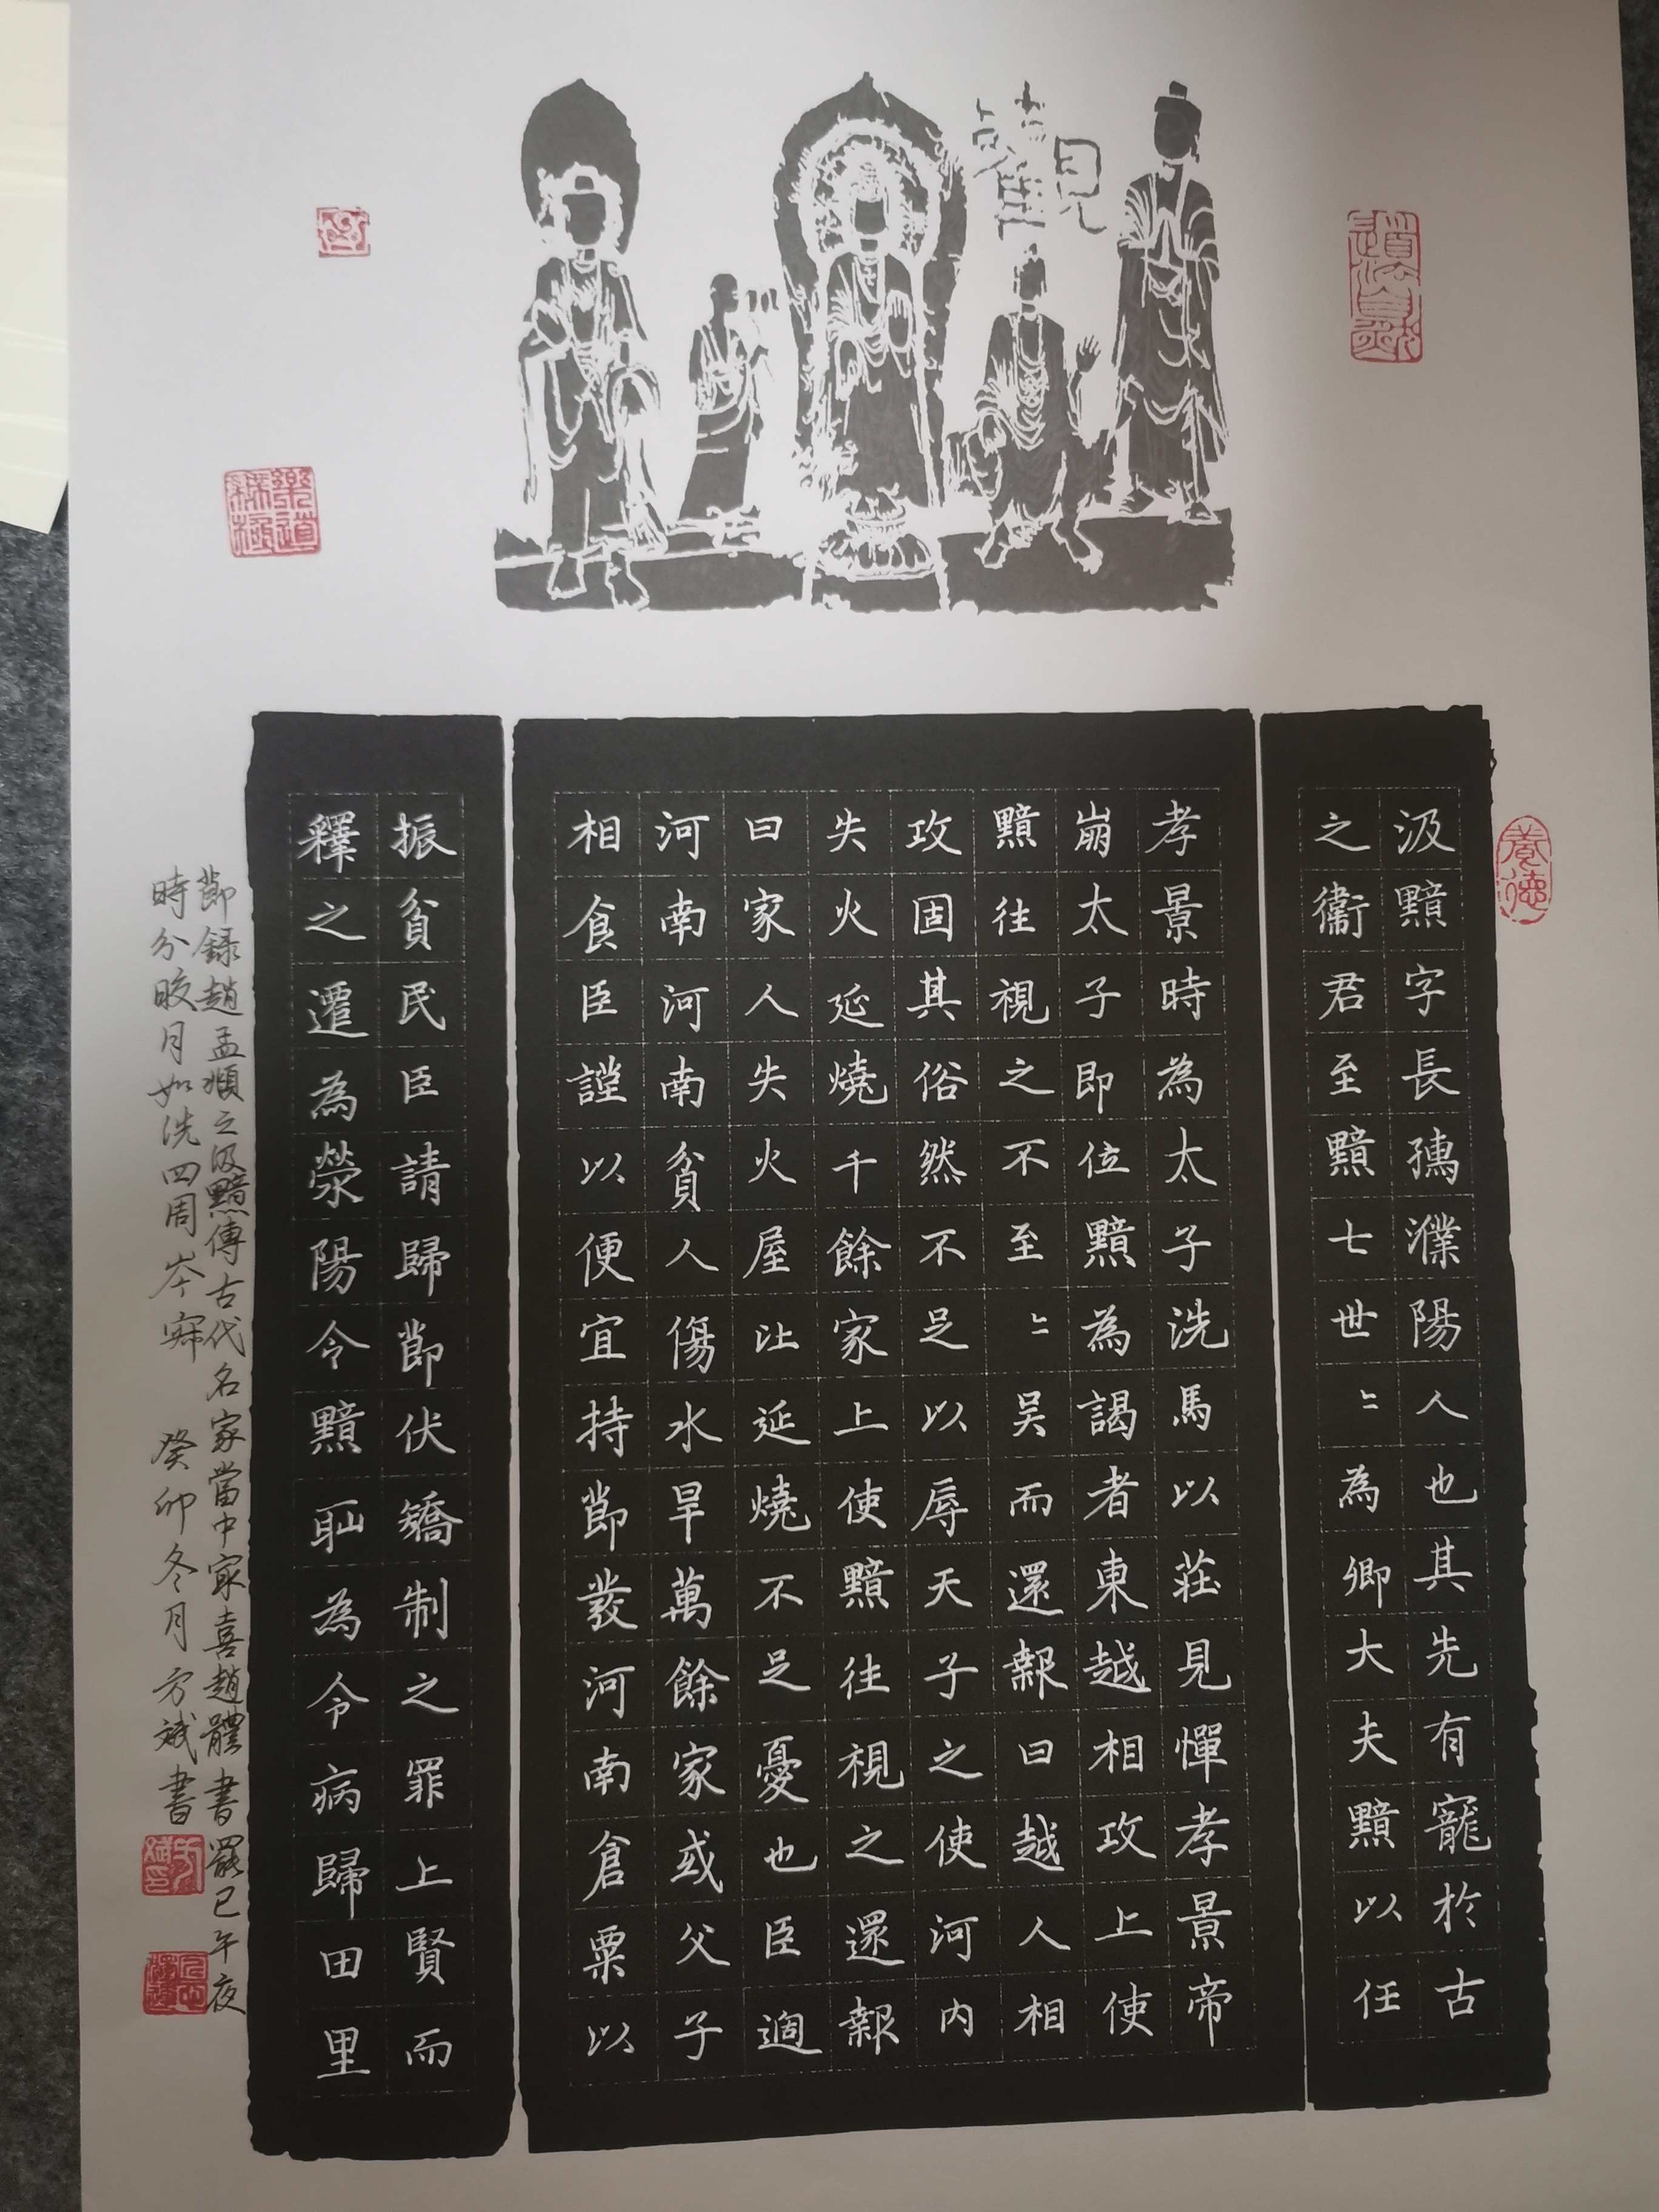 觀
道法自然
樂道無極
養德
汲黯字長孺濮陽人也其先有寵於古
之衞君至黯七世〻為卿大夫黯以任
孝景時為太子洗馬以莊見憚孝景帝
崩太子即位黯為謁者東越相攻上使
黯往視之不至〻吴而還報曰越人相
攻固其俗然不足以辱天子之使河内
失火延燒千餘家上使黯往視之還報
曰家人失火屋比延燒不足憂也臣過
河南河南貧人傷水旱萬餘家或父子
相食臣謹以便宜持節發河南倉粟以
振貧民臣請歸節伏矯制之罪上賢而
釋之遷為滎陽令黯恥為令病歸田里
節録趙孟頫之汲黯傳古代名家當中㝡喜趙體書罷已午夜
時分皎月如洗四周岑寂 癸卯冬月方斌書